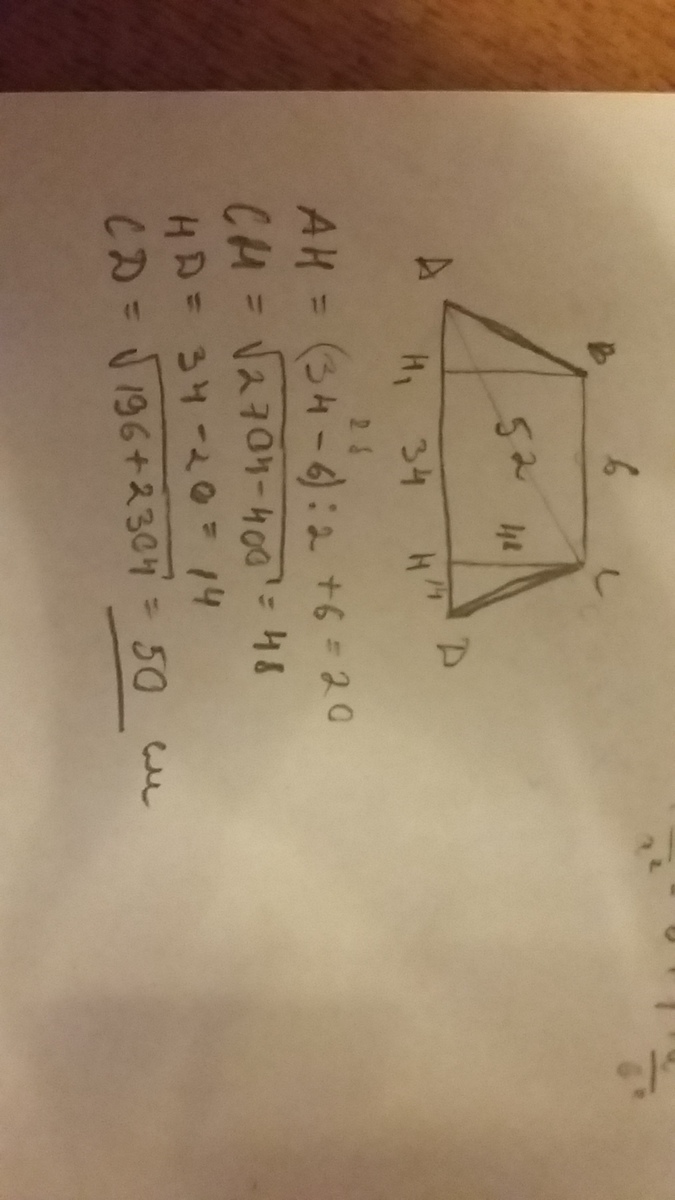 B 6 C
52 48
A H₁ 34 H 14 D
28
AH = (34 - 6) : 2 + 6 = 20
CH = √2704-400 = 48
HD = 34 - 20 = 14
CD = √196+2304 = 50 см